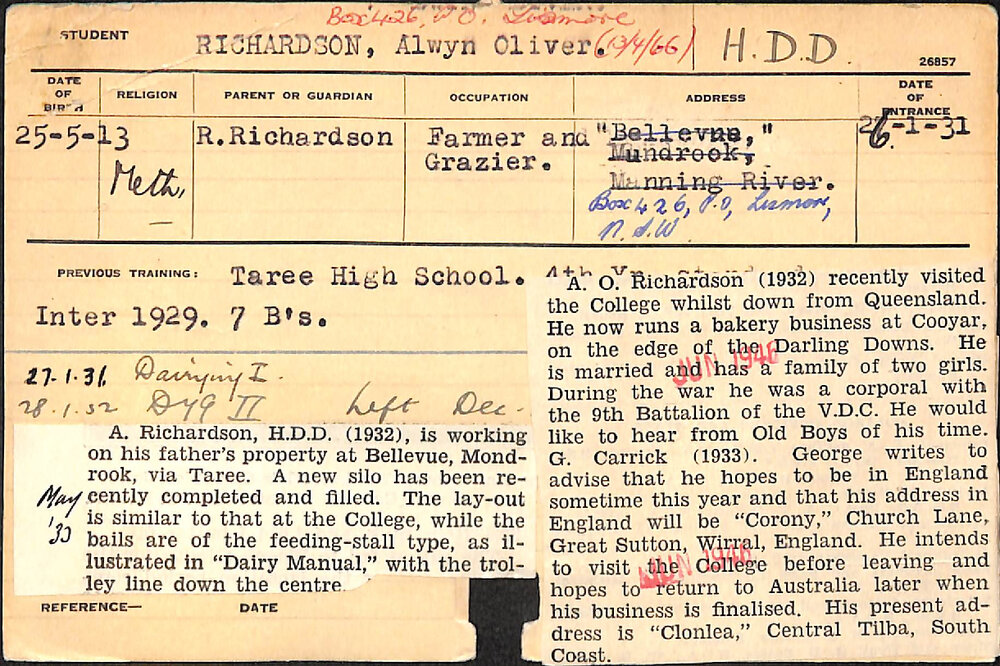 Box 426, P.O. Lismore
STUDENT
RICHARDSON, Alwyn Oliver. (13/4/66) H.D.D.
26857
DATE OF BIRTH
RELIGION
PARENT OR GUARDIAN
OCCUPATION
ADDRESS
DATE OF ENTRANCE
25-5-13
Meth,
R.Richardson
Farmer and
Grazier.
"Bellevue,"
Mundrook,
Manning River.
Box 426, P.O, Lismore,
N.S.W.
26-1-31
PREVIOUS TRAINING: Taree High School.
Inter 1929. 7 B's.
27.1.31 Dairying I.
28.1.32 Dyg II Left Dec.
A. Richardson, H.D.D. (1932), is working
on his father's property at Bellevue, Mond-
rook, via Taree. A new silo has been re-
cently completed and filled. The lay-out
is similar to that at the College, while the
bails are of the feeding-stall type, as il-
lustrated in "Dairy Manual," with the trol-
ley line down the centre.
May
'33
REFERENCE—
DATE
4th
A. O. Richardson (1932) recently visited
the College whilst down from Queensland.
He now runs a bakery business at Cooyar,
on the edge of the Darling Downs. He
is married and has a family of two girls.
During the war he was a corporal with
the 9th Battalion of the V.D.C. He would
like to hear from Old Boys of his time.
G. Carrick (1933). George writes to
advise that he hopes to be in England
sometime this year and that his address in
England will be "Corony," Church Lane,
Great Sutton, Wirral, England. He intends
to visit the College before leaving and
hopes to return to Australia later when
his business is finalised. His present ad-
dress is "Clonlea," Central Tilba, South
Coast.
JUN 1946
JUN 1946